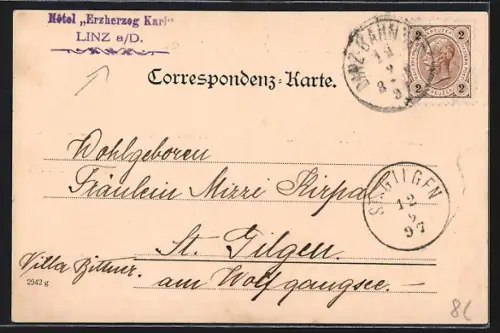 Hôtel „Erzherzog Karl“
LINZ a/D.
LINZ-BAHNHOF
2 2
Correspondenz-Karte.
Wohlgeboren
Fräulein Mizzi Kirpal
ST. GILGEN
12
9
97
St. Gilgen
Villa Bittner.
am Wolfgangsee.
2942 g